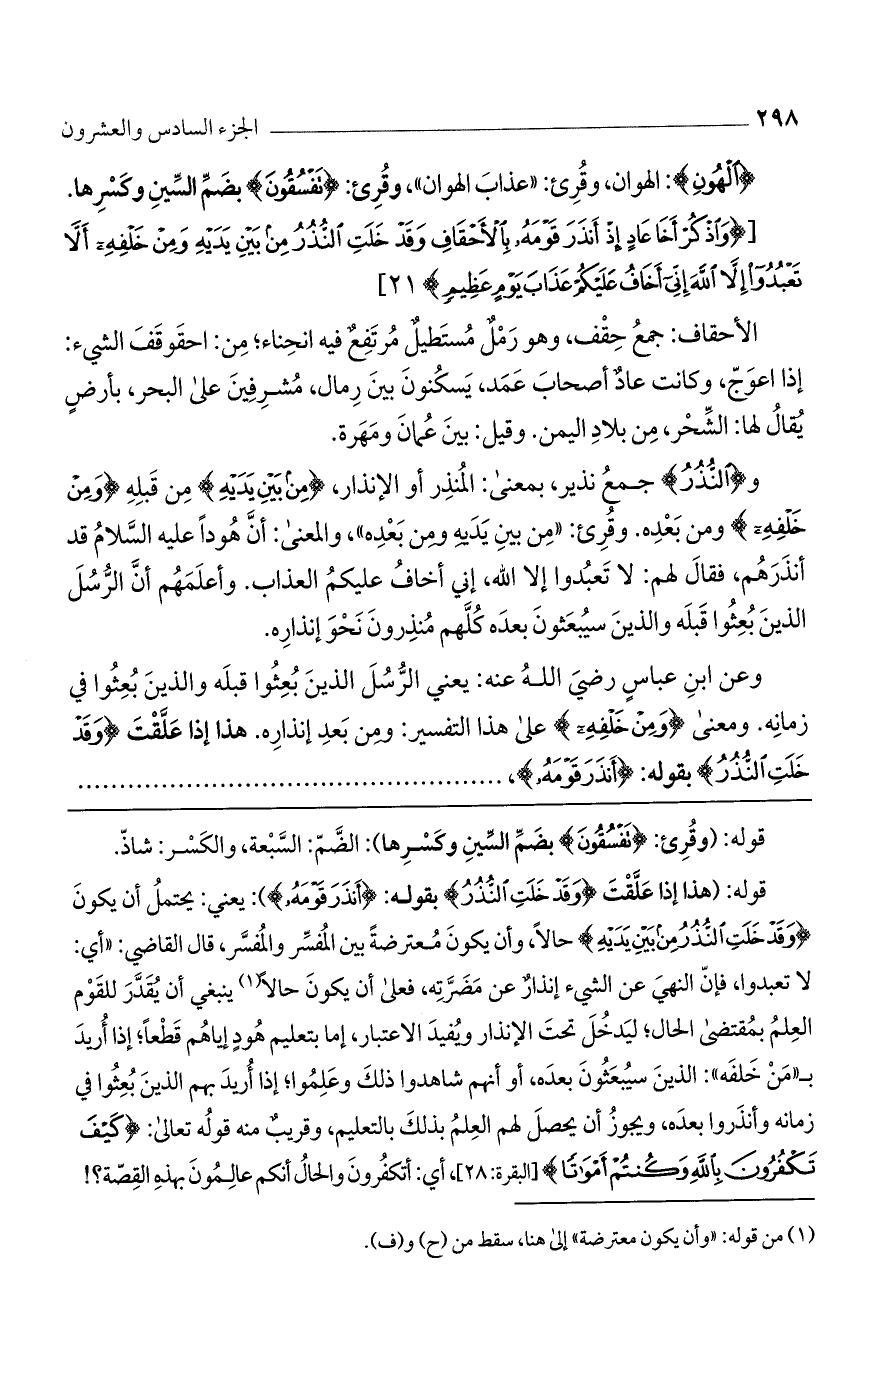 ٢٩٨ الجزء السادس والعشرون
﴿ٱلْهُونِ﴾: الهوان، وقُرِئ: «عذابَ الهوان»، وقُرِئ: ﴿نَفْسُقُونَ﴾ بضَمِّ السِّينِ وكَسْرِها.
[﴿وَٱذْكُرْ أَخَا عَادٍ إِذْ أَنذَرَ قَوْمَهُۥ بِٱلْأَحْقَافِ وَقَدْ خَلَتِ ٱلنُّذُرُ مِنۢ بَيْنِ يَدَيْهِ وَمِنْ خَلْفِهِۦٓ أَلَّا
تَعْبُدُوٓا۟ إِلَّا ٱللَّهَ إِنِّىٓ أَخَافُ عَلَيْكُمْ عَذَابَ يَوْمٍ عَظِيمٍ﴾ ٢١]
الأحقاف: جمعُ حِقْف، وهو رَمْلٌ مُستَطيلٌ مُرتَفِعٌ فيه انحِناء؛ مِن: احقَوقَفَ الشيء:
إذا اعوَجّ، وكانت عادٌ أصحابَ عَمَد، يَسكُنونَ بينَ رِمال، مُشرِفِينَ علىٰ البحر، بأرضٍ
يُقالُ لها: الشِّحْر، مِن بلادِ اليمن. وقيل: بينَ عُمانَ ومَهَرة.
و﴿ٱلنُّذُرُ﴾ جمعُ نذير، بمعنىٰ: المُنذِر أو الإنذار، ﴿مِنۢ بَيْنِ يَدَيْهِ﴾ مِن قَبلِهِ ﴿وَمِنْ
خَلْفِهِۦٓ﴾ ومن بَعْدِه. وقُرِئ: «مِن بينِ يَدَيهِ ومِن بَعْدِه»، والمعنىٰ: أنَّ هُوداً عليه السَّلامُ قد
أنذَرَهُم، فقالَ لهم: لا تَعبُدوا إلا الله، إني أخافُ عليكمُ العذاب. وأعلَمَهُم أنَّ الرُّسُلَ
الذينَ بُعِثُوا قَبلَه والذينَ سيُبعَثونَ بعدَه كُلَّهم مُنذِرونَ نَحْوَ إنذارِه.
وعن ابنِ عباسٍ رضيَ اللهُ عنه: يعني الرُّسُلَ الذينَ بُعِثُوا قبلَه والذينَ بُعِثُوا في
زمانِه. ومعنىٰ ﴿وَمِنْ خَلْفِهِۦٓ﴾ علىٰ هذا التفسير: ومِن بَعدِ إنذارِه. هذا إذا عَلَّقْتَ ﴿وَقَدْ
خَلَتِ ٱلنُّذُرُ﴾ بقوله: ﴿أَنذَرَ قَوْمَهُۥ﴾، ..................................................
قوله: (وقُرِئ: ﴿نَفْسُقُونَ﴾ بضَمِّ السِّينِ وكَسْرِها): الضَّمّ: السَّبْعة، والكَسْر: شاذّ.
قوله: (هذا إذا عَلَّقْتَ ﴿وَقَدْ خَلَتِ ٱلنُّذُرُ﴾ بقوله: ﴿أَنذَرَ قَوْمَهُۥ﴾): يعني: يحتملُ أن يكونَ
﴿وَقَدْ خَلَتِ ٱلنُّذُرُ مِنۢ بَيْنِ يَدَيْهِ﴾ حالاً، وأن يكونَ مُعترضةً بين المُفسِّر والمُفسَّر، قال القاضي: «أي:
لا تعبدوا، فإنّ النهيَ عن الشيء إنذارٌ عن مَضَرَّتِه، فعلىٰ أن يكونَ حالاً(١) ينبغي أن يُقَدَّرَ للقَوْمِ
العِلمُ بمُقتضىٰ الحال؛ ليَدخُلَ تحتَ الإنذار ويُفيدَ الاعتبار، إما بتعليم هُودٍ إياهُم قَطْعاً؛ إذا أُريدَ
بـ«مَنْ خَلفَه»: الذينَ سيُبعَثُونَ بعدَه، أو أنهم شاهدوا ذلكَ وعَلِمُوا؛ إذا أُريدَ بهم الذينَ بُعِثُوا في
زمانه وأنذَروا بعدَه، ويجوزُ أن يحصلَ لهم العِلمُ بذلكَ بالتعليم، وقريبٌ منه قولُه تعالىٰ: ﴿كَيْفَ
تَكْفُرُونَ بِٱللَّهِ وَكُنتُمْ أَمْوَٰتًا﴾ [البقرة: ٢٨]، أي: أتكفُرونَ والحالُ أنكم عالِمُونَ بهذِهِ القِصّة؟!
(١) من قوله: «وأن يكون معترضة» إلىٰ هنا، سقط من (ح) و(ف).